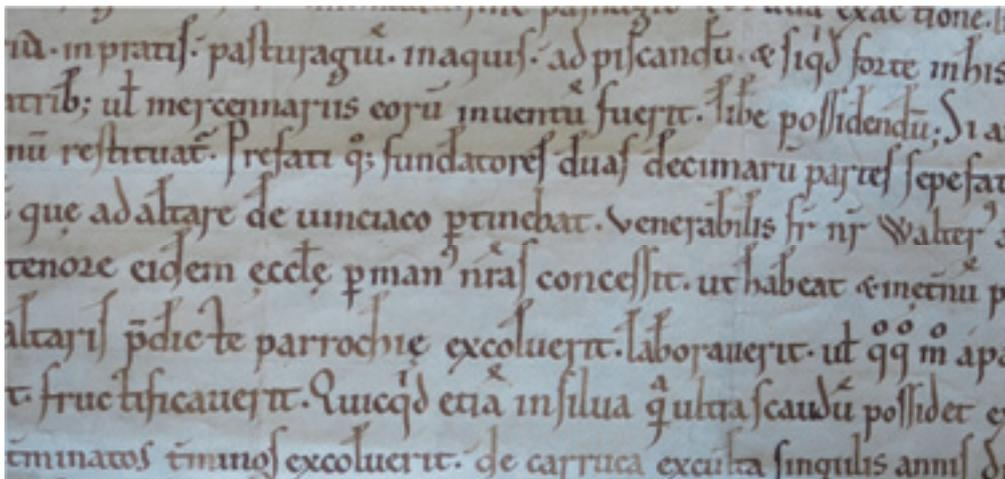 exactione.
in pratis. pasturagiū. in aquis. ad piscandū. & siqͥd forte in his
atrib; ul̄ mercennariis eorū inuentū fuerit. lib̄e possidendū; Si a
nū restituat̄. Prefati qͦ; fundatores duas decimarū partes sepefat
quę ad altare de uinciaco ꝑtinebat. Venerabilis fr̄ nr̄ Walterꝰ
tenore eidem ęcclę ꝑ manꝰ nr̄as concessit. ut habeat & inęt̄nū p
altaris p̄dictę parrochię excoluerit. laborauerit. ul̄ qͦqͦ mͦ ap
t. fructificauerit. Quicqͥd etiā in silua q̨ͣ ultra scaudū possidet
t̄minatos t̄minos excoluerit. de carruca exculta singulis annis